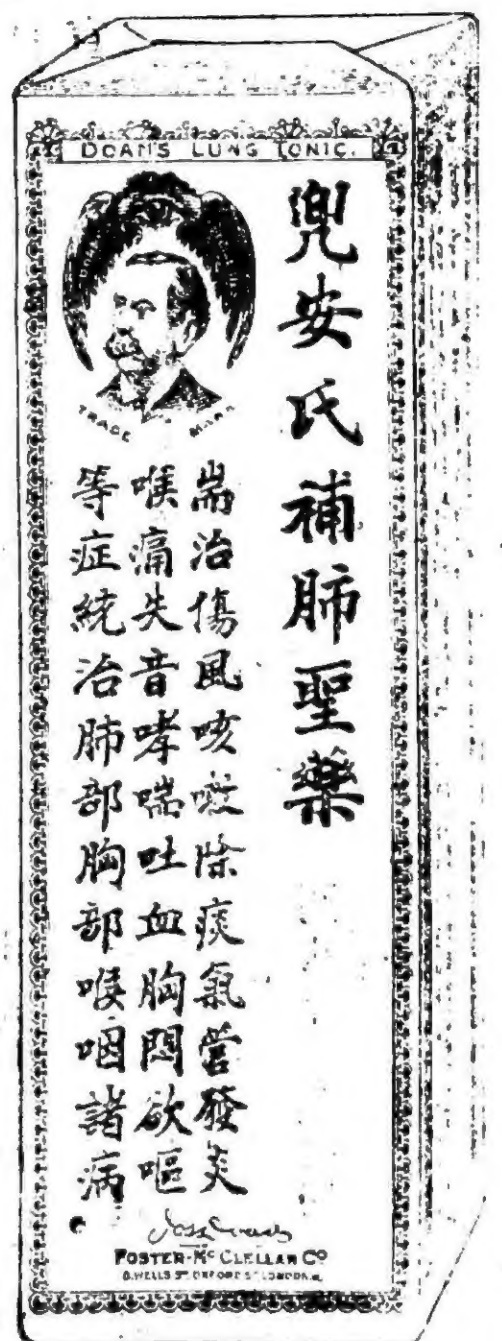 DOAN'S LUNG TONIC.
TRADE MARK
兜安氏補肺聖藥
耑治傷風咳嗽除痰氣管發炎
喉痛失音哮喘吐血胸悶欲嘔
等症統治肺部胸部喉咽諸病
FOSTER-McCLELLAN Co
8, WELLS ST OXFORD ST LONDON.